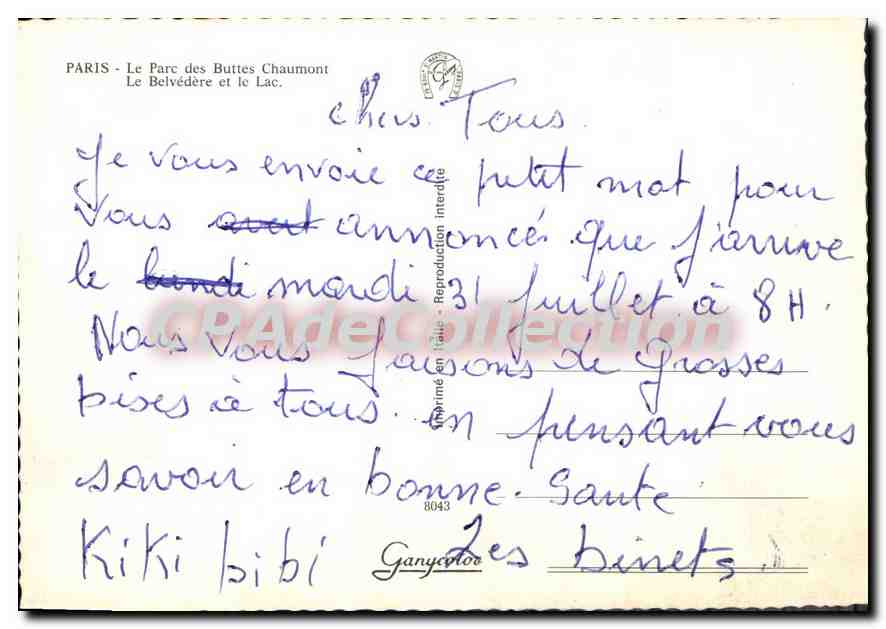 PARIS - Le Parc des Buttes Chaumont
Le Belvédère et le Lac.
chers Tous
Je vous envoie ce petit mot pour
vous avant annoncés que j'arrive
le lundi mardi 31 juillet à 8H.
Nous vous faisons de grosses
bises à tous. en pensant vous
savoir en bonne. Santé
Kiki bibi Les binets
Imprimé en Italie - Reproduction interdite
8043
Ganycolor
CPAdeCollection